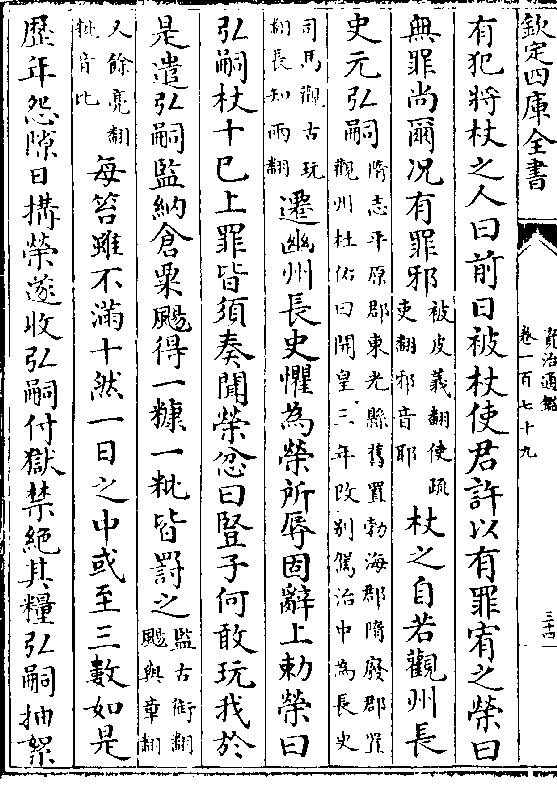 欽定四庫全書
資治通鑑
卷一百七十九
三十四
有犯將杖之人曰前日被杖使君許以有罪宥之榮曰
無罪尚爾况有罪邪
被皮義翻使疏
吏翻邪音耶
杖之自若觀州長
史元弘嗣
隋志平原郡東光縣舊置勃海郡隋廢郡置
觀州杜佑曰開皇三年改别駕治中為長史
司馬觀古玩
翻長知兩翻
遷幽州長史懼為榮所辱固辭上勅榮曰
弘嗣杖十已上罪皆須奏聞榮忿曰豎子何敢玩我於
是遣弘嗣監納倉粟颺得一糠一粃皆罰之
監古衘翻
颺與章翻
又餘亮翻
粃音比
每笞雖不滿十然一日之中或至三數如是
歷年怨隙日構榮遂收弘嗣付獄禁絶其糧弘嗣抽絮